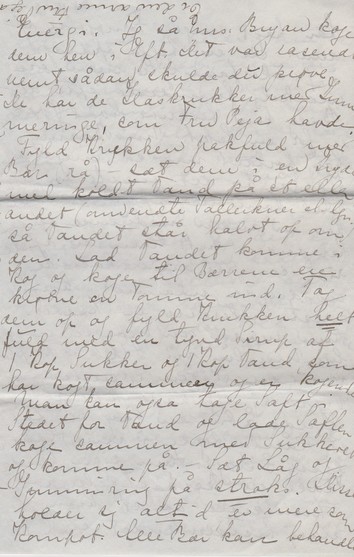 Energi. Jeg så Mrs. Bryan koge
dem hen i Eft. det var rasende
nemt sådan skulde du prøve,
De har de Glaskrukker med Gum
meringe, som Fru Oja havde
Fyld Krykken pakfuld med
Bær (rå) - sæt dem i en Gryde
med koldt Vand på et eller
andet (omvendte Tallerkner el.
så Vandet står halvt op om
den. Lad Vandet komme i
Kog og koge til Bærrene er
krobne en Tomme ind. Tag
dem op og fyld Krukken helt
fuld med en tynd Sirup af
1 Kop Sukker og 1 Kop Vand som
har kogt sammen og er kogende
Man kan også tage Saft i
Stedet for Vand og lade Saften
koge sammen med Sukkeret
og komme på. - Sæt Låg og
Gummiring på straks.
holder sig altid er mere som
Kompot. Alle Bær kan behandl